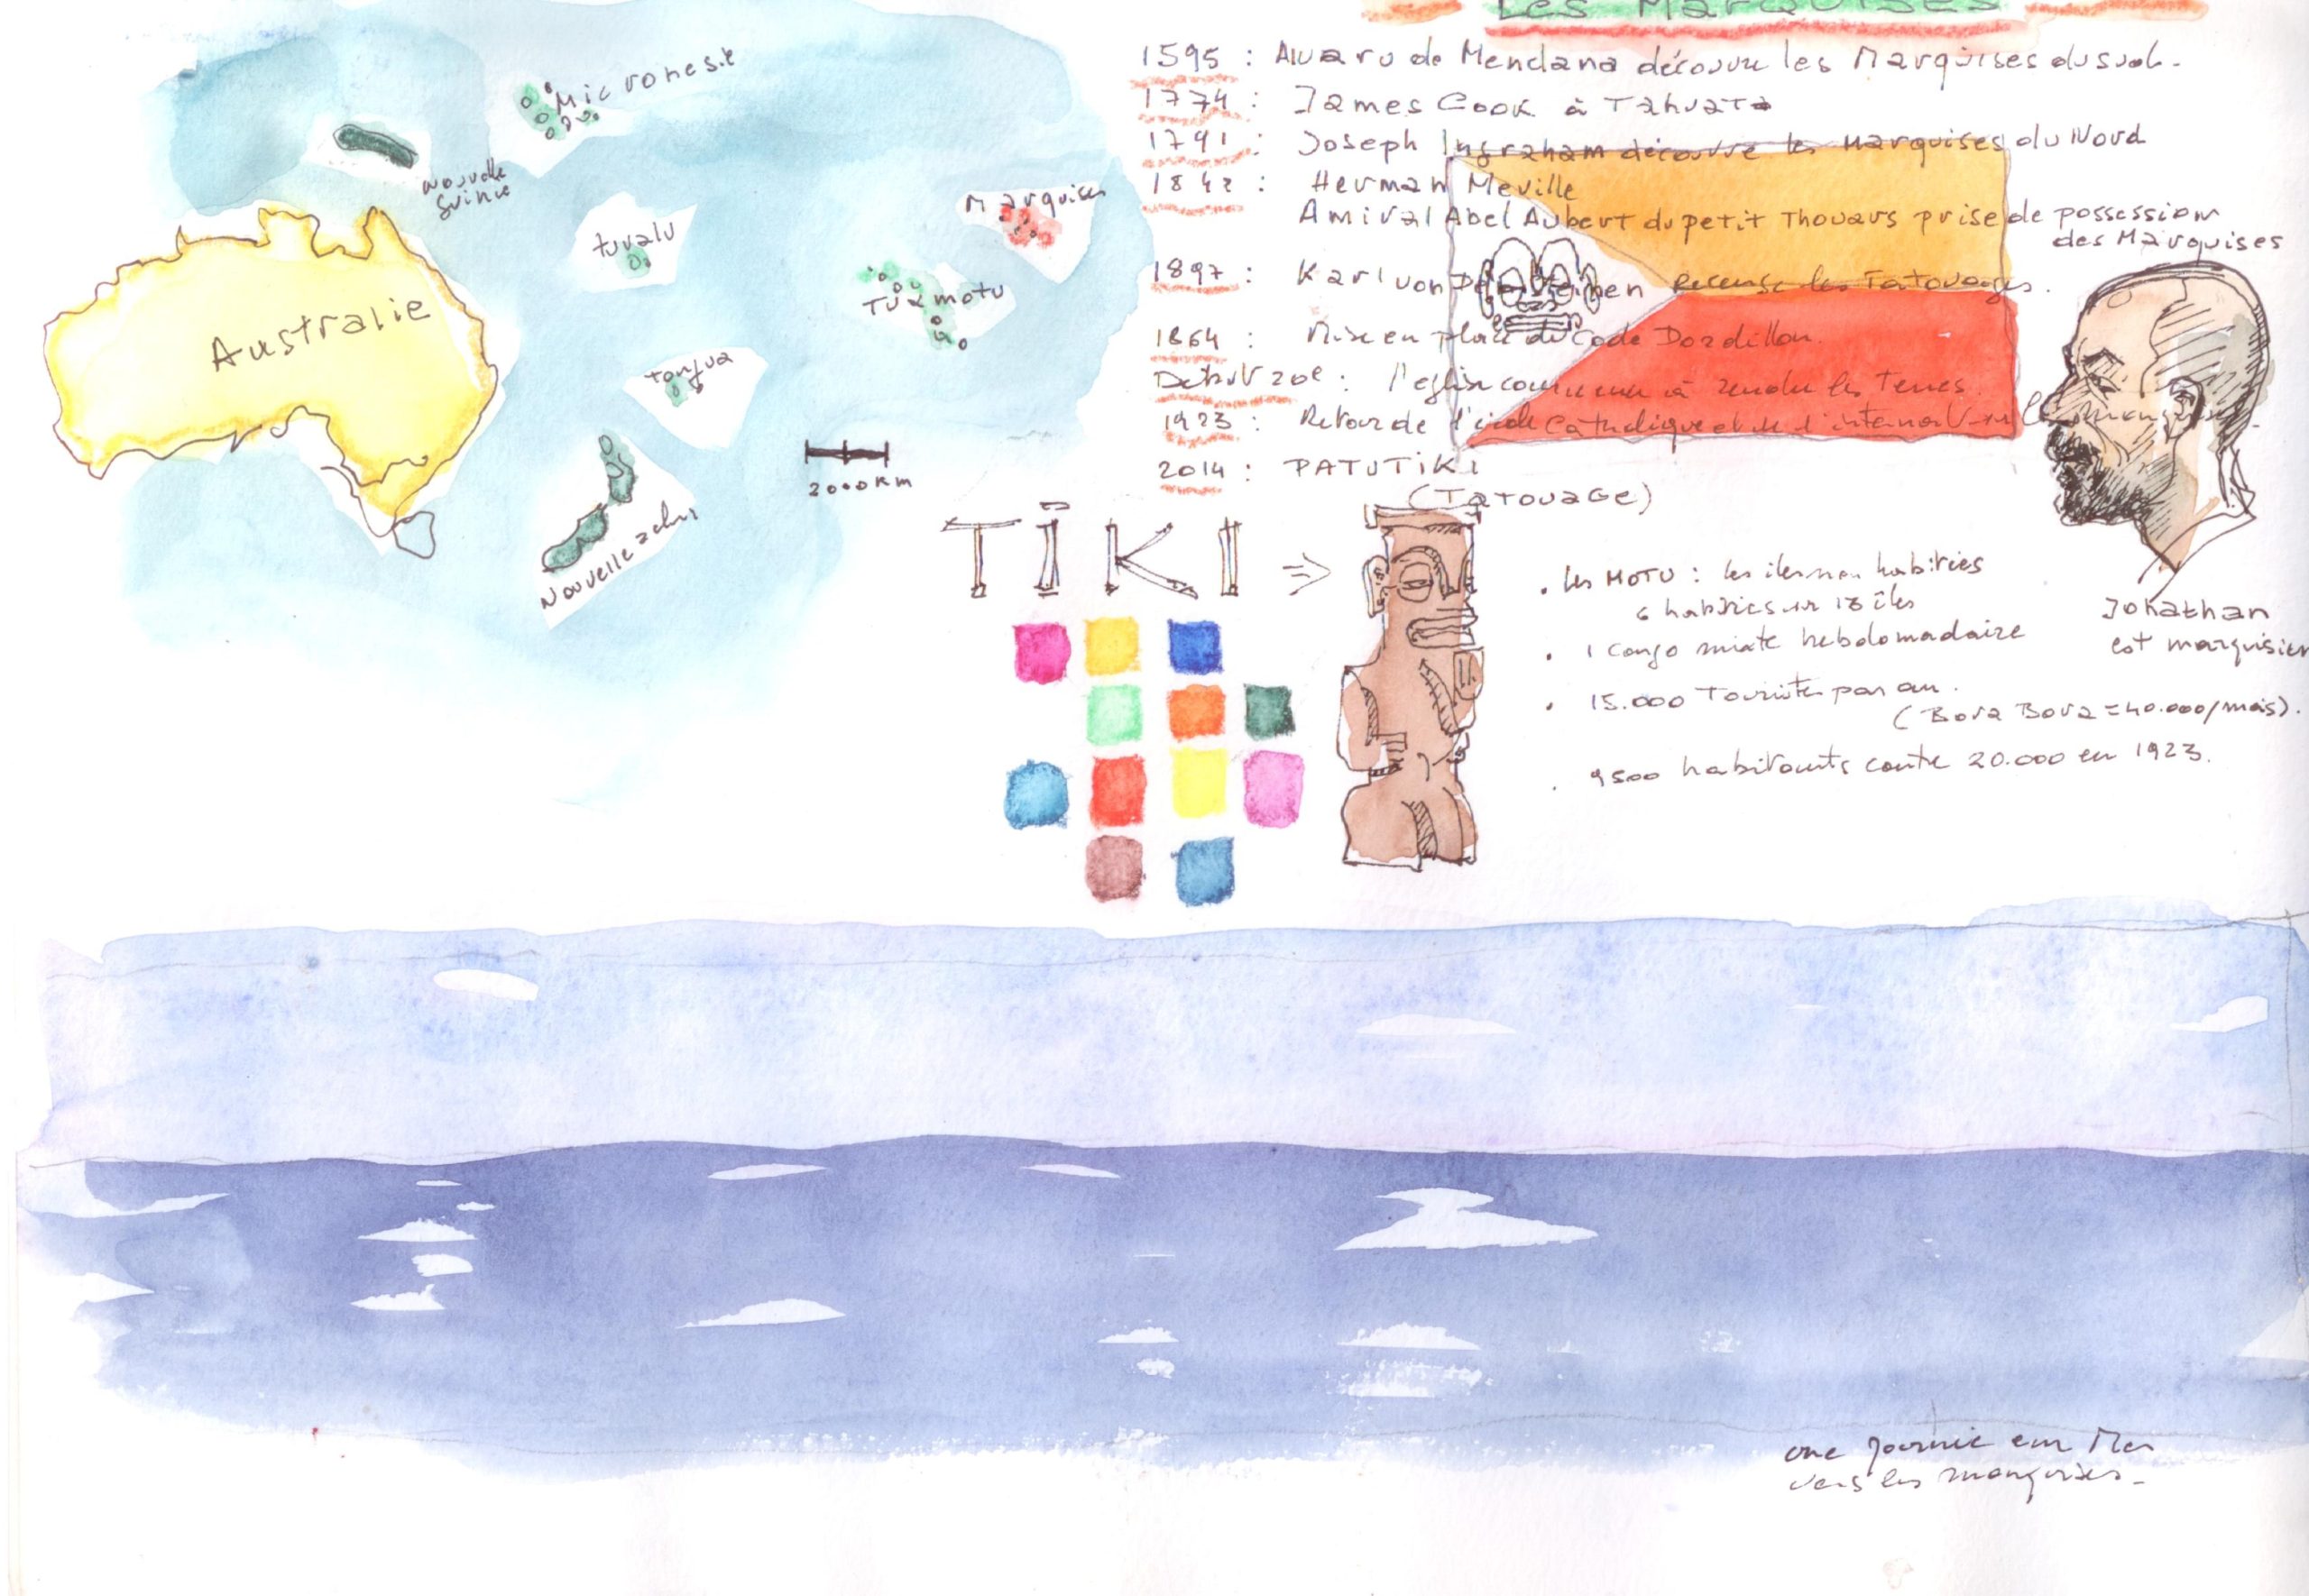 Les Marquises
1595 : Alvaro de Mendana découvre les Marquises du sud.
1774 : James Cook à Tahuata
1791 : Joseph Ingraham découvre les Marquises du Nord
1842 : Herman Meville
Amiral Abel Aubert du petit Thouars prise de possession
des Marquises
1897 : Karl von Den Steinen Recense les Tatouages.
1864 : Mise en place du Code Dordillon.
Début 20e : l'eglise commence à rendre les terres.
1923 : Retour de l'école Catholique et de l'internat
2014 : PATUTIKI
(Tatouage)
Micronesie
Nouvelle
Guinée
Marquises
tuvalu
Tuamotu
Australie
tongua
2000 KM
Nouvelle zelande
TIKI =>
. Les MOTU : les iles non habitées
6 habitées sur 13 îles
. 1 Cargo mixte hebdomadaire
. 15.000 Touristes par an.
(Bora Bora = 40.000/mois).
. 9500 habitants contre 20.000 en 1923.
Jonathan
est marquisien
une journée en Mer
vers les marquises.